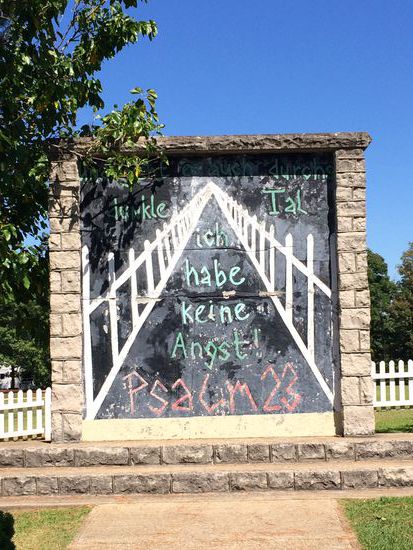 auch durchs
dunkle Tal
ich
habe
keine
Angst!
Psalm 23